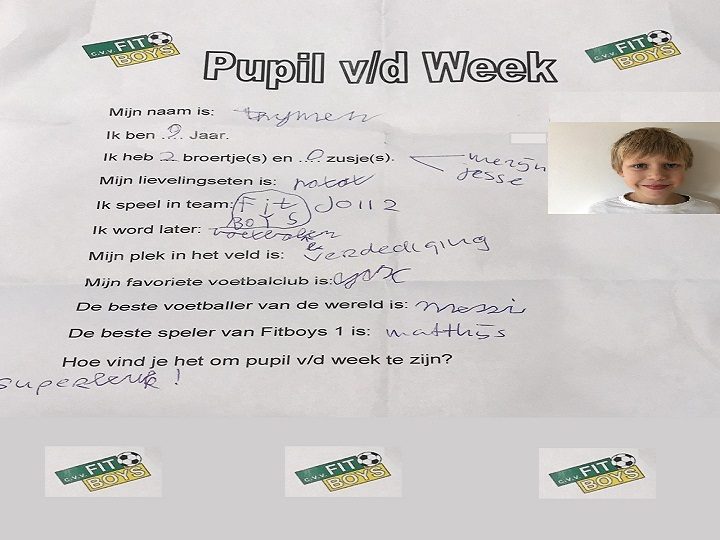 C.V.V. FIT BOYS
Pupil v/d Week
C.V.V. FIT BOYS
Mijn naam is: Thymen
Ik ben ... Jaar.
Ik heb 2 broertje(s) en 0 zusje(s). Merijn
Jesse
Mijn lievelingseten is: patat
Ik speel in team: Fit BOYS JO11 2
Ik word later:
Mijn plek in het veld is: verdediging
Mijn favoriete voetbalclub is: ajax
De beste voetballer van de wereld is: messi
De beste speler van Fitboys 1 is: matthijs
Hoe vind je het om pupil v/d week te zijn?
superleuk!
C.V.V. FIT BOYS
C.V.V. FIT BOYS
C.V.V. FIT BOYS